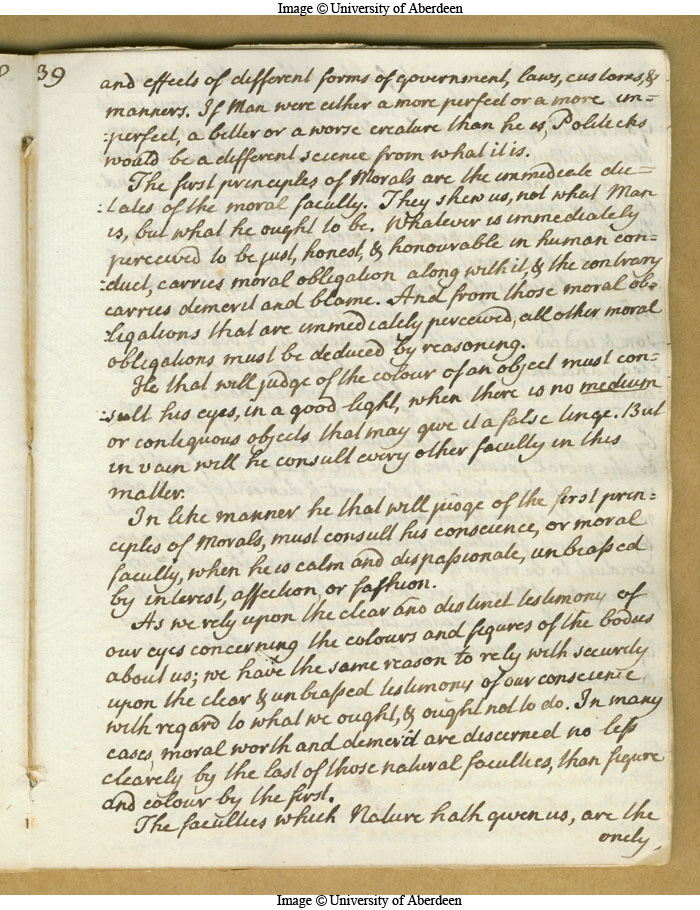 Image © University of Aberdeen
39
and effects of different forms of government, laws, customs, &
manners. If Man were either a more perfect or a more im=
:perfect, a better or a worse creature than he is, Politicks
would be a different science from what it is.
The first principles of Morals are the immediate dic=
:tates of the moral faculty. They shew us, not what Man
is, but what he ought to be. Whatever is immediately
perceived to be just, honest, & honourable in human con=
:duct, carries moral obligation along with it, & the contrary
carries demerit and blame. And from those moral ob=
:ligations that are immediately perceived, all other moral
obligations must be deduced by reasoning.
He that will judge of the colour of an object must con=
:sult his eyes, in a good light, when there is no medium
or contiguous objects that may give it a false tinge. But
in vain will he consult every other faculty in this
matter.
In like manner he that will judge of the first prin=
ciples of Morals, must consult his conscience, or moral
faculty, when he is calm and dispassionate, unbiassed
by interest, affection, or fashion.
As we rely upon the clear and distinct testimony of
our eyes concerning the colours and figures of the bodies
about us; we have the same reason to rely with security
upon the clear & unbiassed testimony of our conscience
with regard to what we ought, & ought not to do. In many
cases, moral worth and demerit are discerned no less
clearly by the last of those natural faculties, than figure
and colour by the first.
The faculties which Nature hath given us, are the
onely,
Image © University of Aberdeen